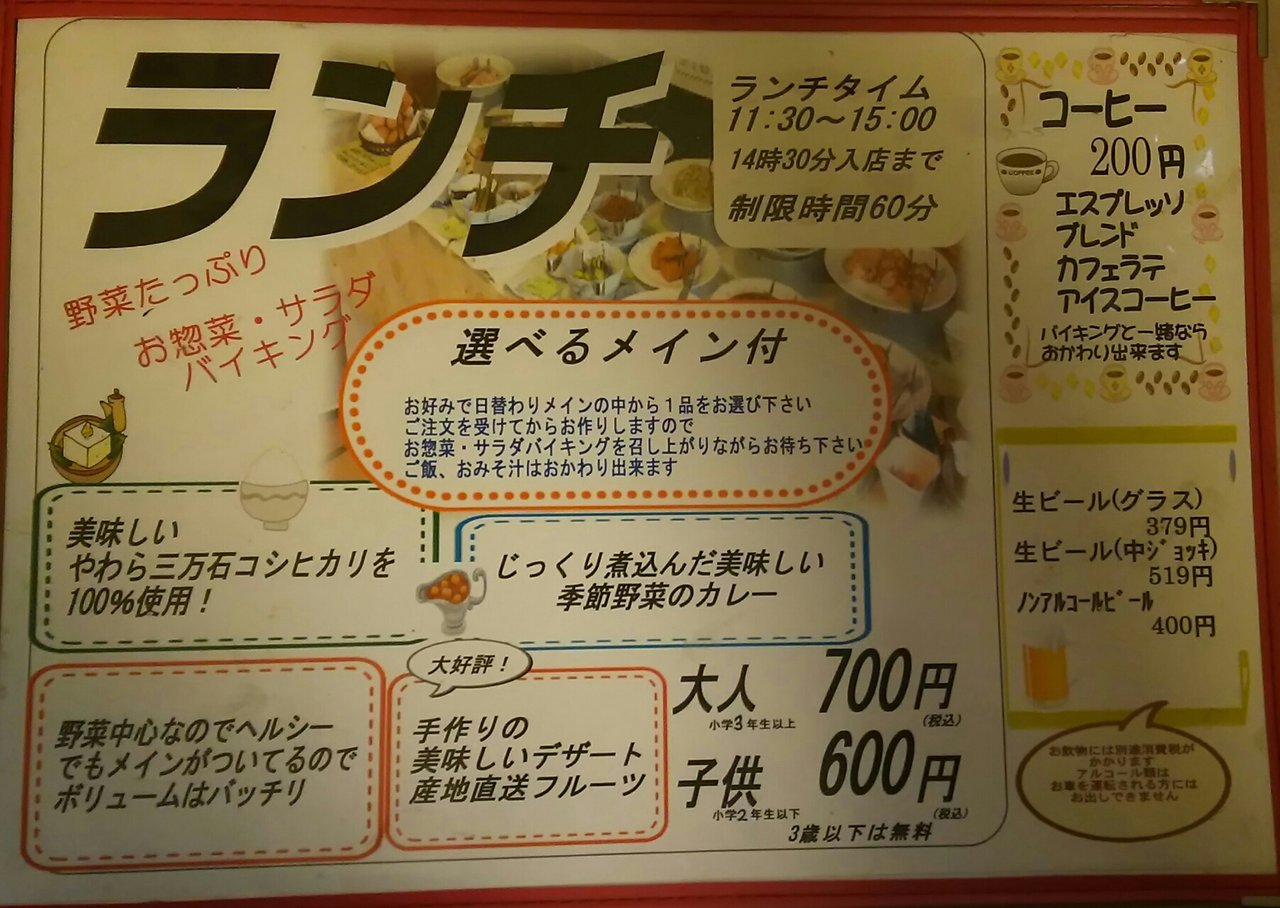 ランチ
ランチタイム
11:30～15:00
14時30分入店まで
制限時間60分
野菜たっぷり
お惣菜・サラダ
バイキング
選べるメイン付
お好みで日替わりメインの中から１品をお選び下さい
ご注文を受けてからお作りしますので
お惣菜・サラダバイキングを召し上がりながらお待ち下さい
ご飯、おみそ汁はおかわり出来ます
美味しい
やわら三万石コシヒカリを
100%使用！
じっくり煮込んだ美味しい
季節野菜のカレー
野菜中心なのでヘルシー
でもメインがついてるので
ボリュームはバッチリ
大好評！
手作りの
美味しいデザート
産地直送フルーツ
大人 700円
小学3年生以上 (税込)
子供 600円
小学2年生以下 (税込)
3歳以下は無料
コーヒー
200円
COFFEE
エスプレッソ
ブレンド
カフェラテ
アイスコーヒー
バイキングと一緒なら
おかわり出来ます
生ビール(グラス)
379円
生ビール(中ｼﾞｮｯｷ)
519円
ﾉﾝｱﾙｺｰﾙﾋﾞｰﾙ
400円
お飲物には別途消費税が
かかります
アルコール類は
お車を運転される方には
お出しできません